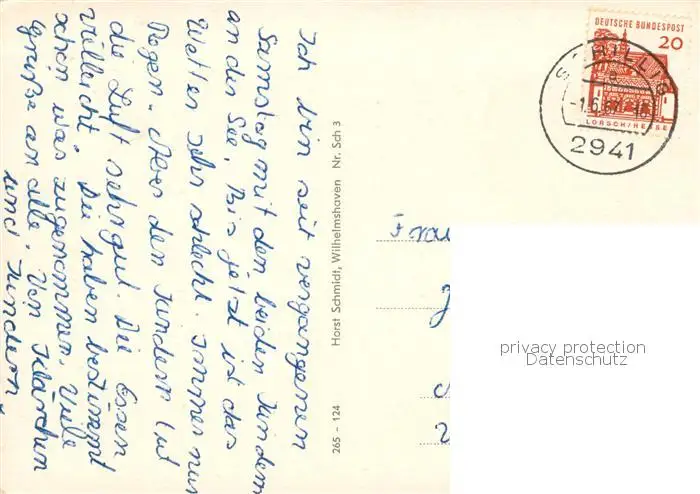 Ich bin seit vergangenen
Samstag mit den beiden Kindern
an der See. Bis jetzt ist das
Wetter sehr schlecht. Immer nur
Regen. Aber den Kindern tut
die Luft sehr gut. Die Essen
vielleicht. Die haben bestimmt
schon was zugenommen. Viele
Grüße an alle. Von Klärchen
und Kindern,
Horst Schmidt, Wilhelmshaven Nr. Sch 3
265 - 124
DEUTSCHE BUNDESPOST
20
LORSCH/HESSEN
SCHILLIG
2941
Frau
privacy protection
Datenschutz